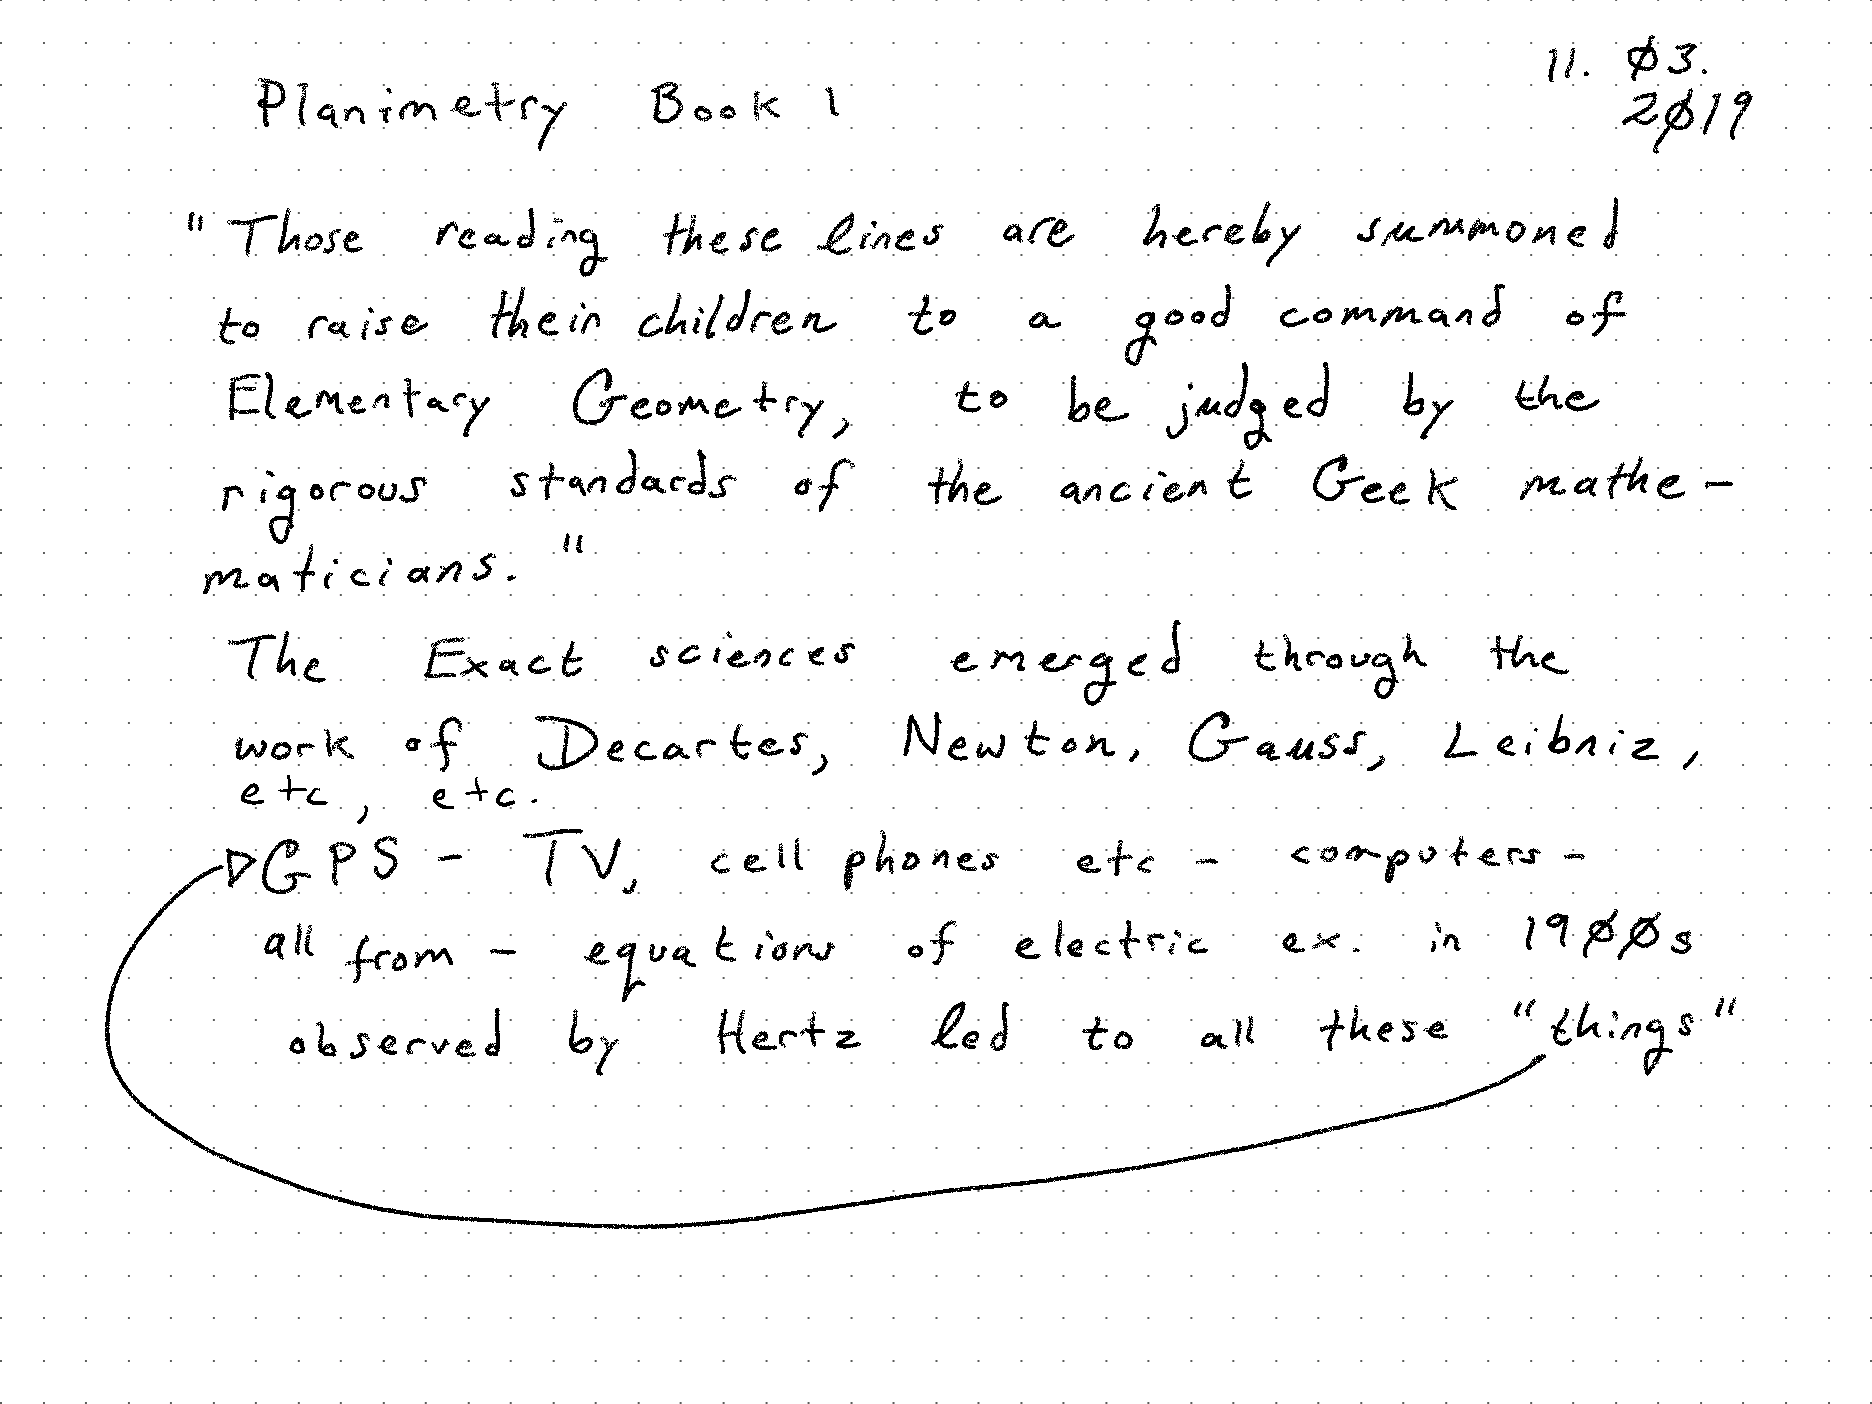 Planimetry Book 1
11. Ø3.
2Ø19
"Those reading these lines are hereby summoned
to raise their children to a good command of
Elementary Geometry, to be judged by the
rigorous standards of the ancient Geek mathe-
maticians."
The Exact sciences emerged through the
work of Decartes, Newton, Gauss, Leibniz,
etc, etc.
GPS - TV, cell phones etc - computers -
all from - equations of electric ex. in 19ØØs
observed by Hertz led to all these "things"